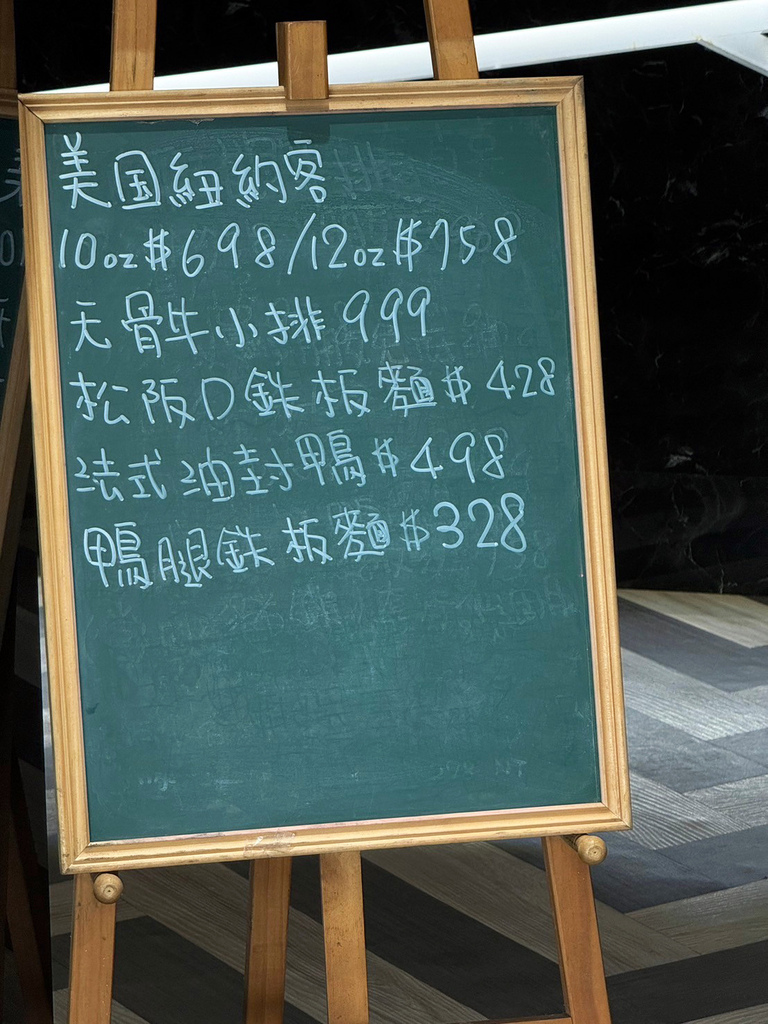 美国紐約客
10oz $698/12oz $758
无骨牛小排 999
松阪口鉄板麵 $428
法式油封鴨 $498
鴨腿鉄板麵 $328